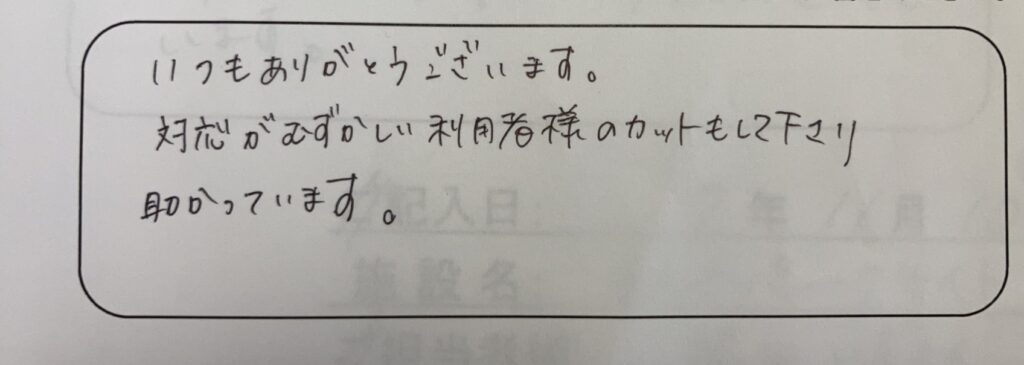 いつもありがとうございます。
対応がむずかしい利用者様のカットもして下さり
助かっています。
記入日
年 月
施設名